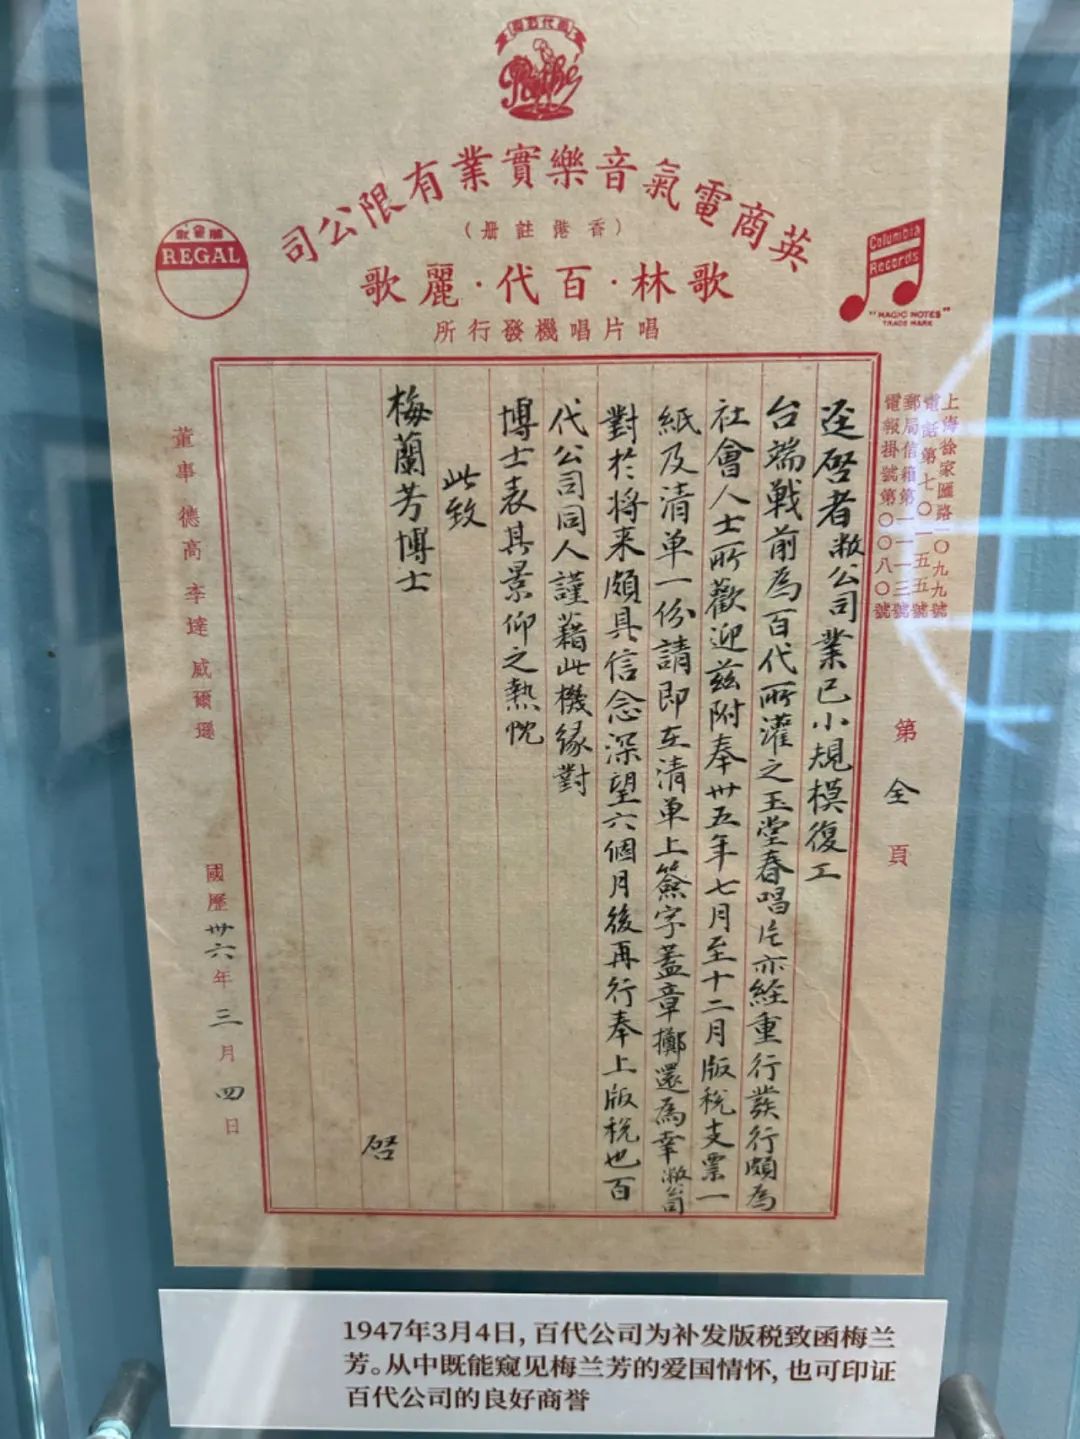 Pathé
英商電氣音樂實業有限公司
（香港註册）
歌林·百代·麗歌
唱片唱機發行所
麗歌
REGAL
Columbia
Records
"MAGIC NOTES"
TRADE MARK
上海徐家匯路一〇九九號
電話第七〇一五五號
郵局信箱第一一一三號
電報掛號第〇〇八〇號
第全頁
迳啓者敝公司業已小規模復工
台端戰前為百代所灌之玉堂春唱片亦經重行發行頗為
社會人士所歡迎茲附奉卅五年七月至十二月版稅支票一
紙及清单一份請即在清单上簽字蓋章擲還為幸敝公司
對於將来頗具信念深望六個月後再行奉上版稅也百
代公司同人謹藉此機緣對
博士表其景仰之熱忱
此致
梅蘭芳博士
啓
董事 德高 李達 威爾遜
國歷卅六年三月四日
1947年3月4日，百代公司为补发版税致函梅兰
芳。从中既能窥见梅兰芳的爱国情怀，也可印证
百代公司的良好商誉